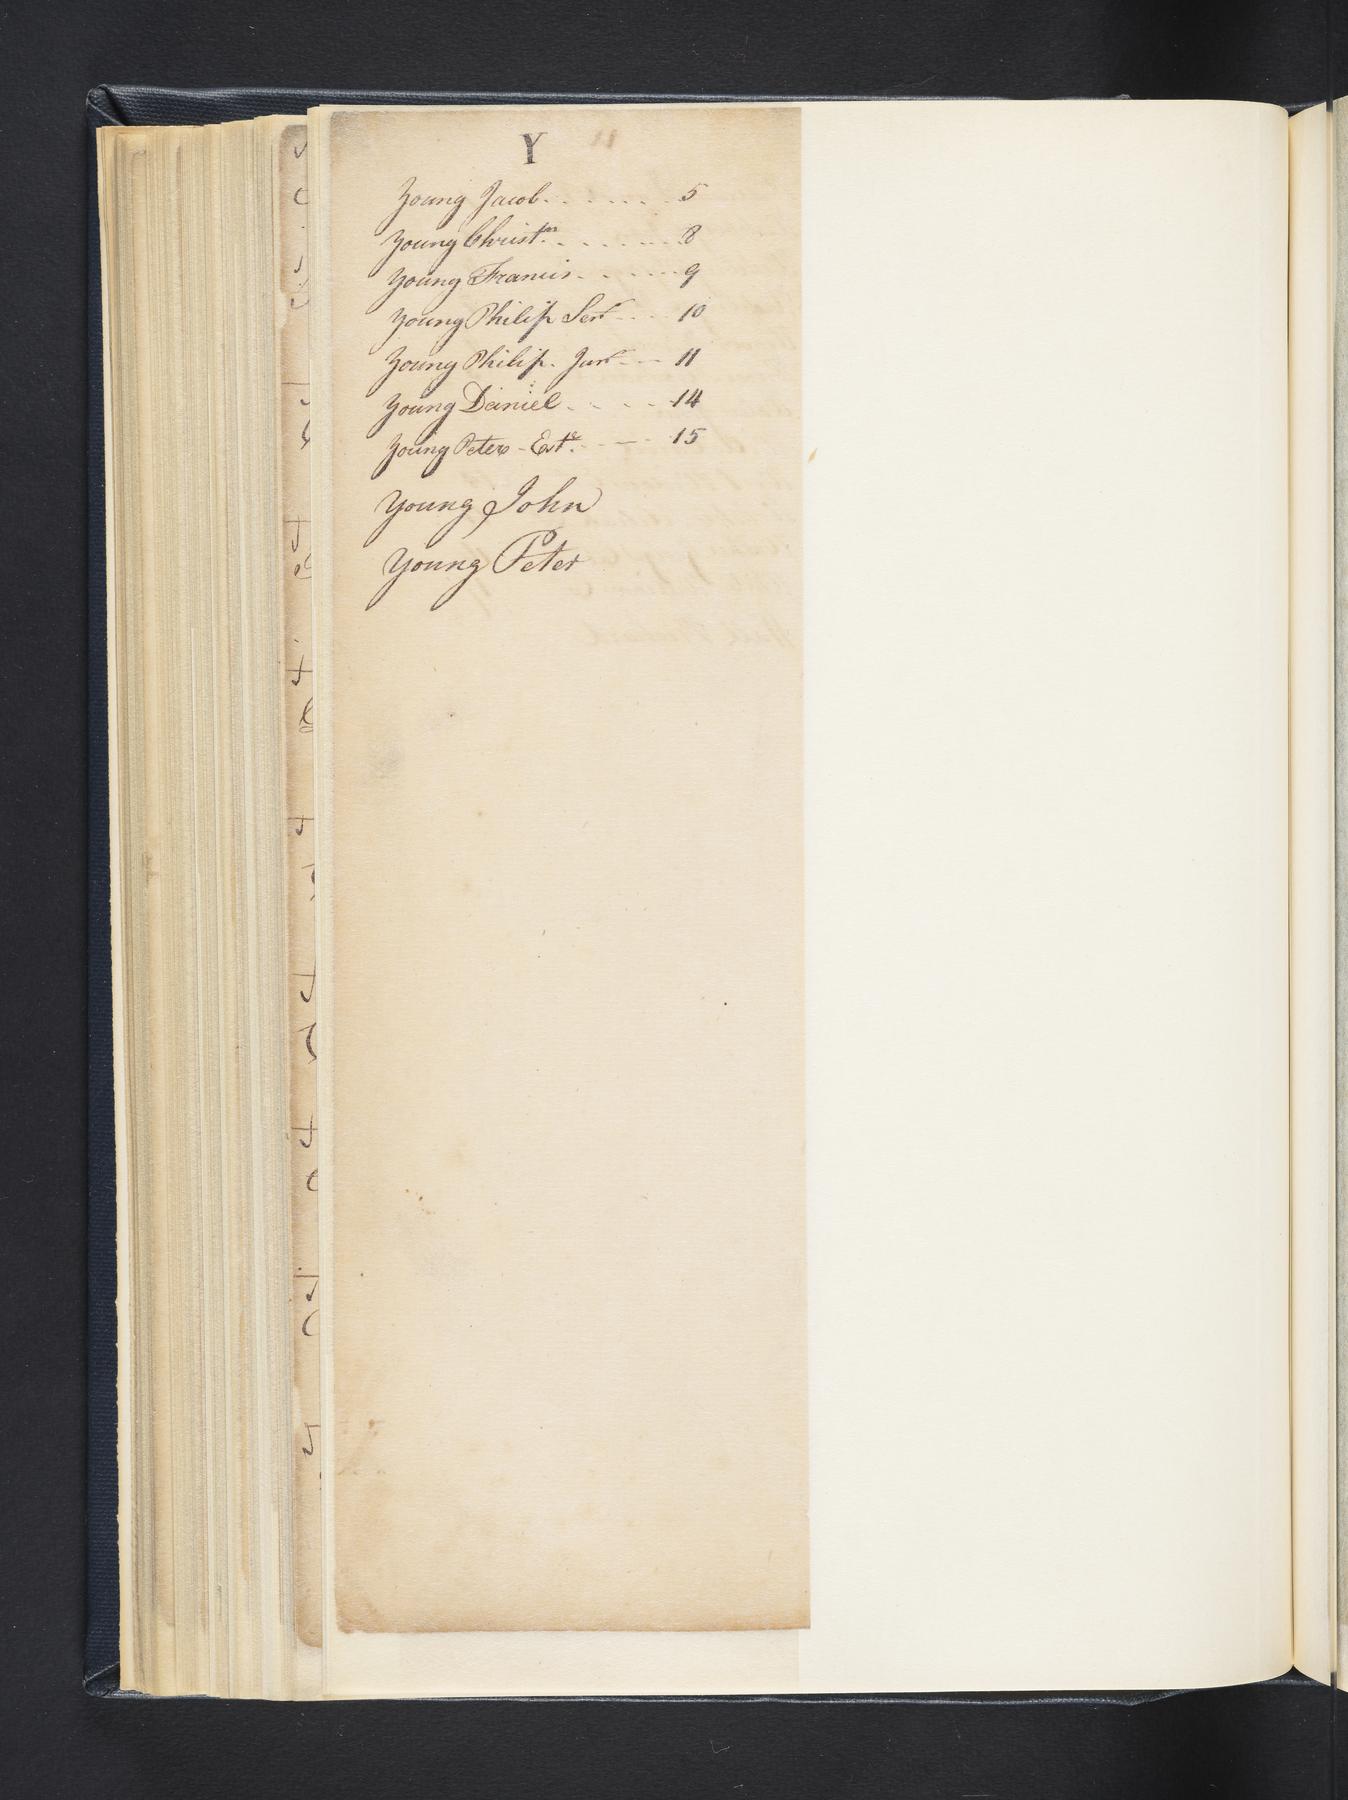 Y
Young Jacob. . . . . . . 5
Young Christn. . . . . . . . 8
Young Francis. . . . . . 9
Young Philip Senr . . . 10
Young Philip. Junr - - - 11
Young Daniel . . . . . 14
Young Peters - Este. - - - 15
Young John
Young Peter